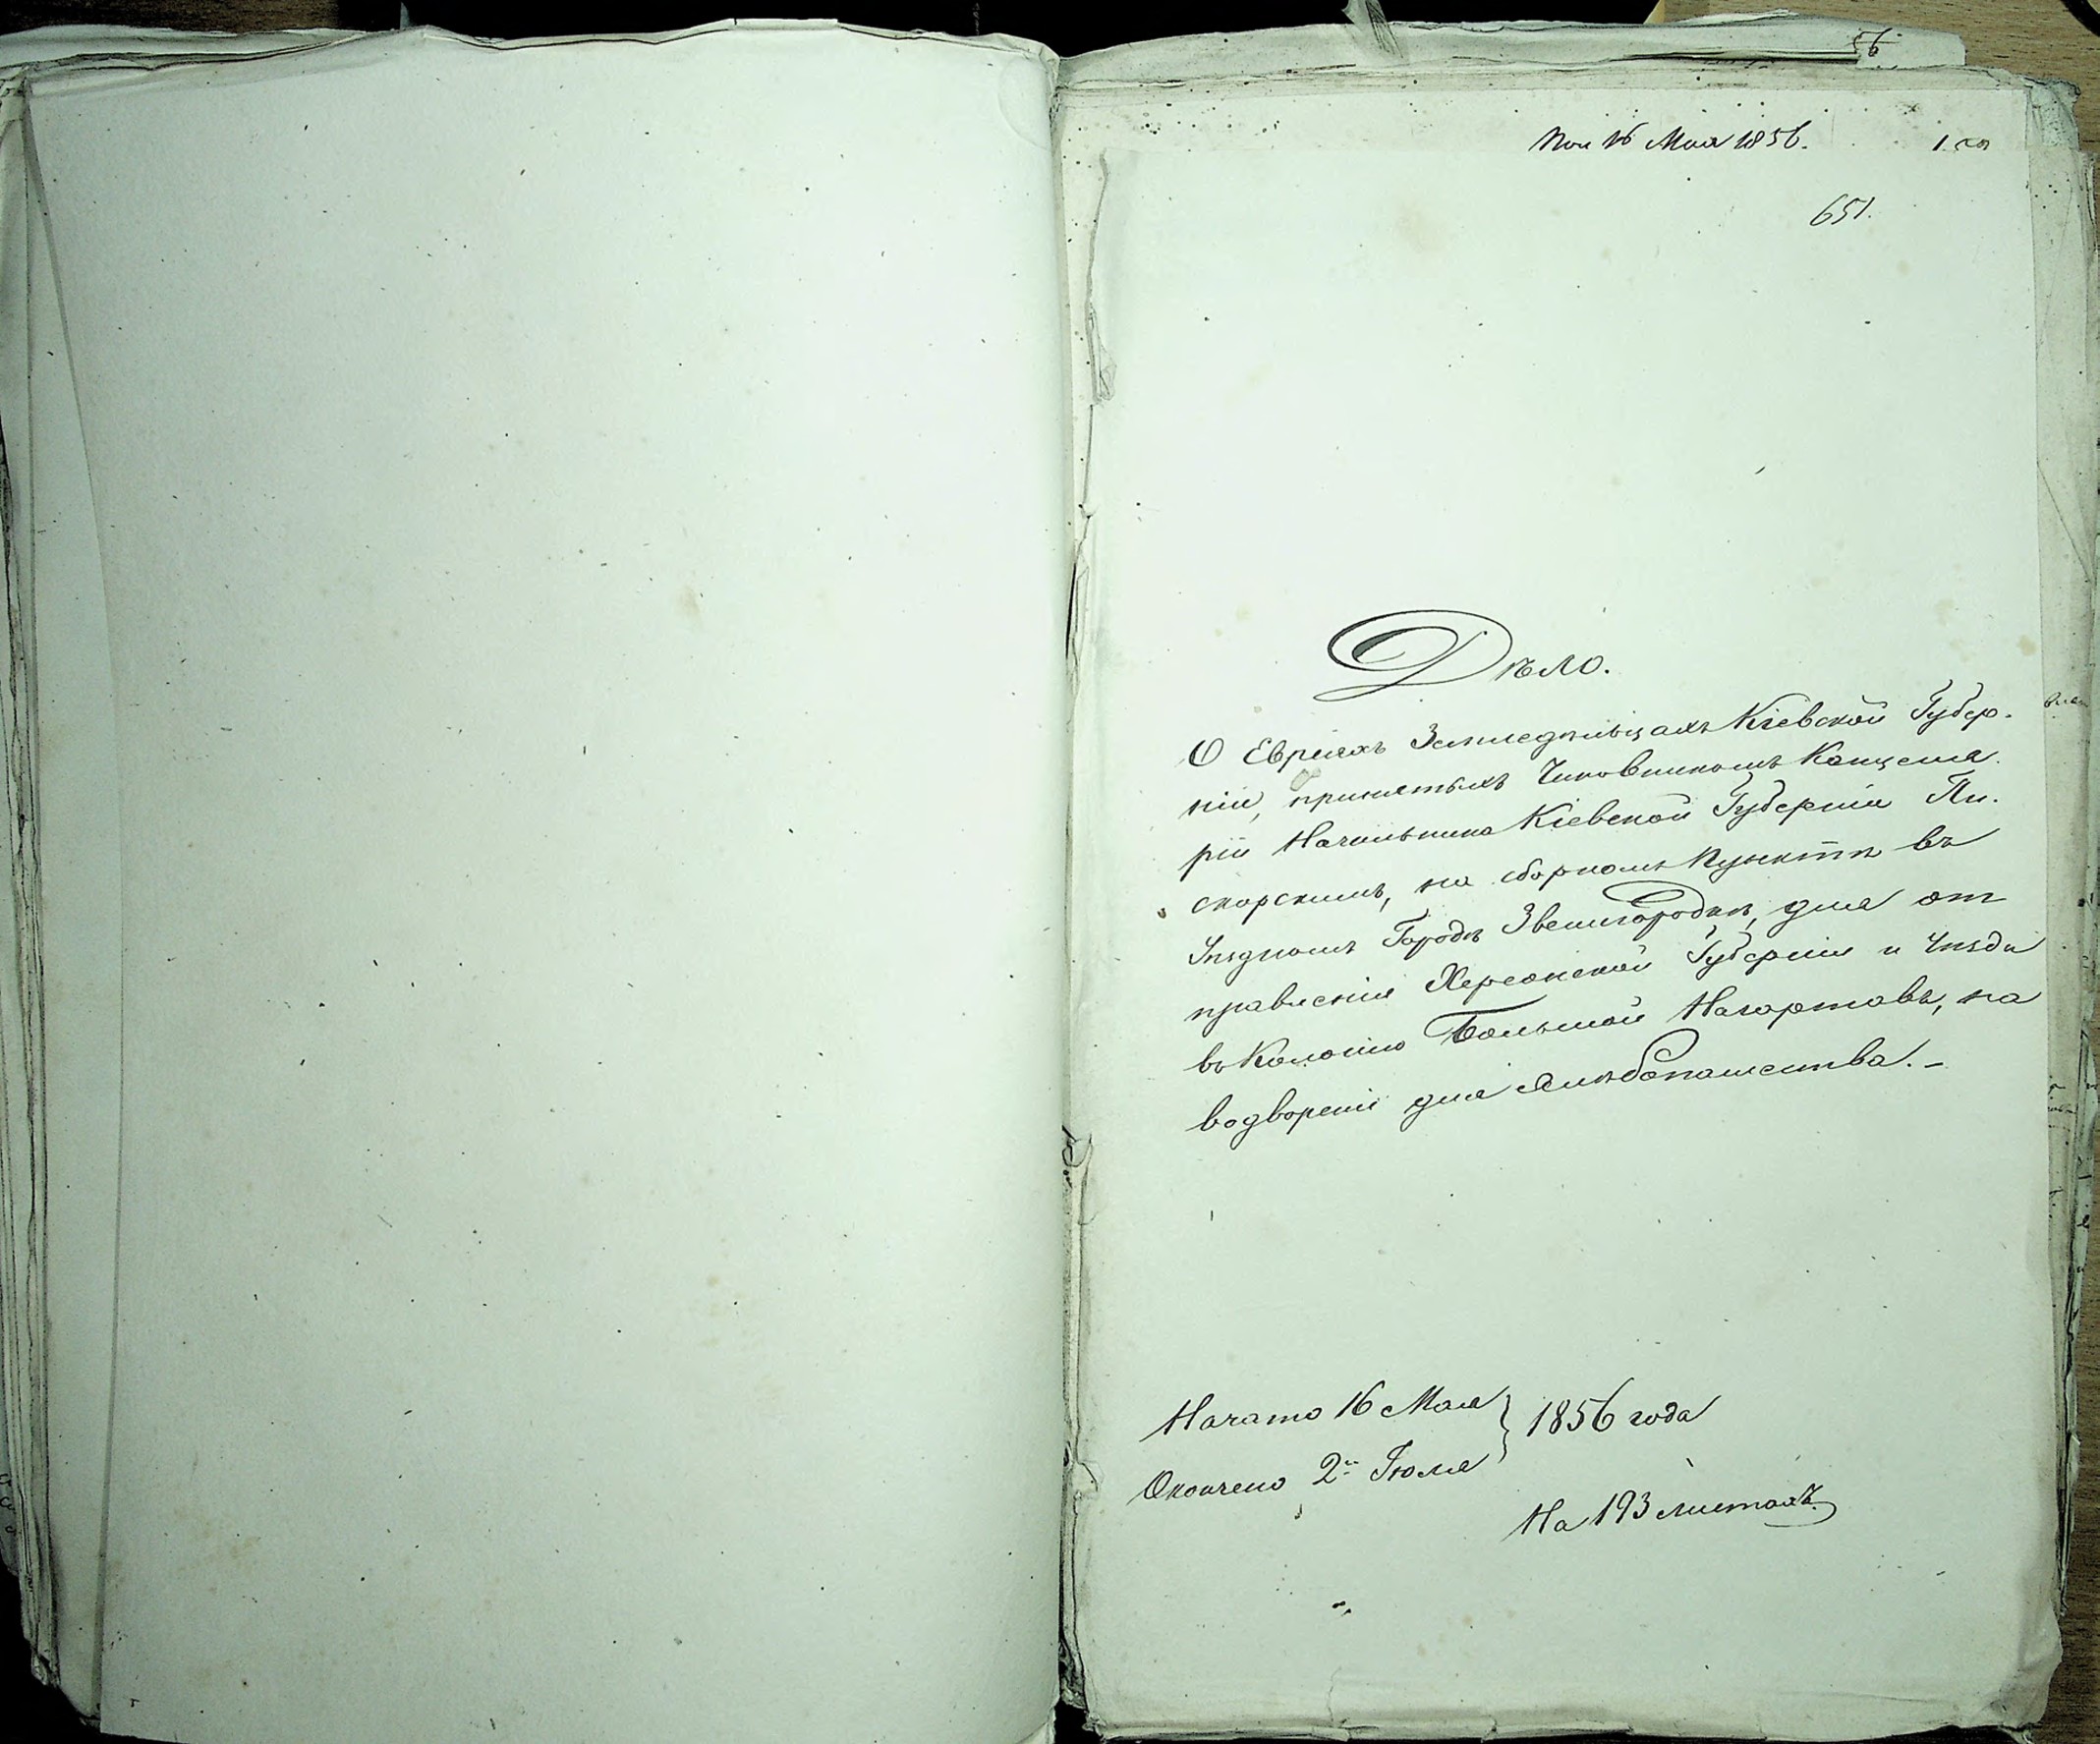 56
16 Мая 1856.
1
651.
Дѣло.
О Евреяхъ Земледѣльцахъ Кіевской Губер-
ніи, принятыхъ Чиновникомъ Канцеля-
ріи Начальника Кіевской Губерніи Пи-
скорскимъ, на сборномъ пунктѣ въ
Уѣздномъ Городѣ Звенигородкѣ, для от
правленія Херсонской Губерніи и Уѣзда
въ Колонію Большой Нагартавъ, на
водвореніе для хлѣбопашества. -
Начато 16 Мая } 1856 года
Окончено 2го Іюля
На 193 листахъ.